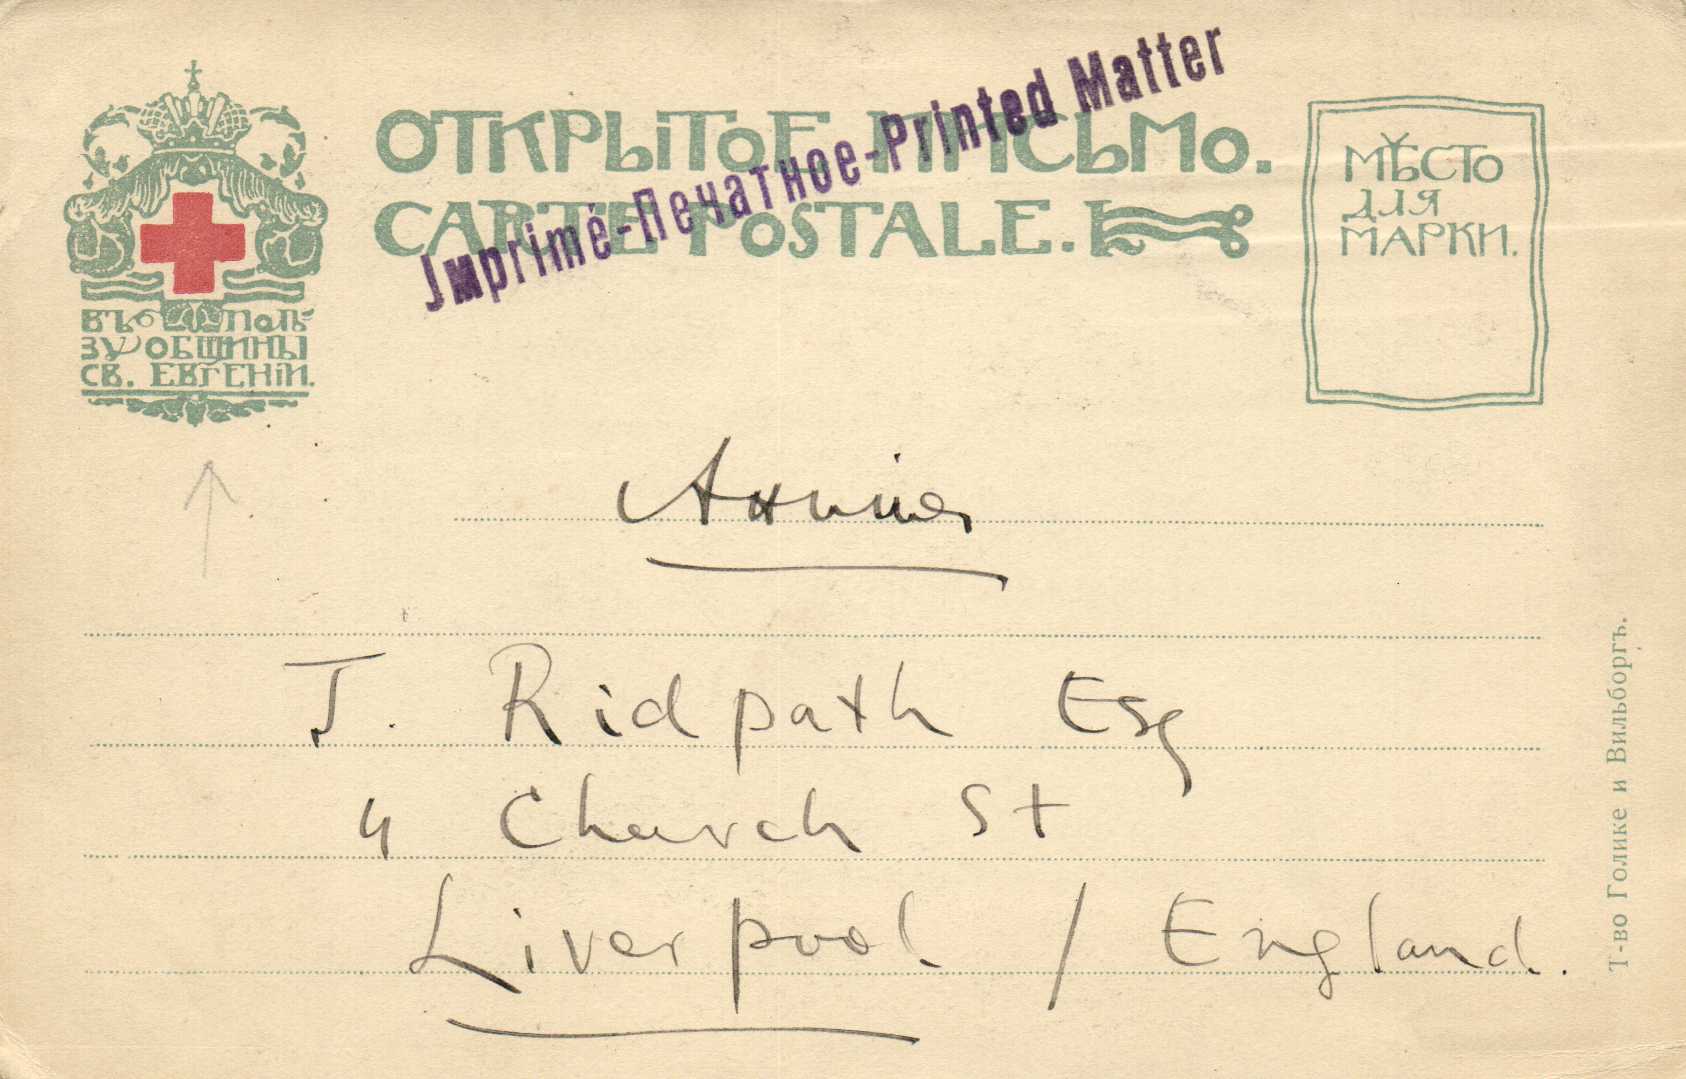 ОТКРЫТОЕ ПИСЬМО.
CARTE POSTALE.
Imprimé-Печатное-Printed Matter
МѢСТО
ДЛЯ
МАРКИ.
ВЪ ПОЛЬ-
ЗУ ОБЩИНЫ
СВ. ЕВГЕНІИ.
Англія
J. Ridpath Esq
4 Church St
Liverpool / England.
Т-во Голике и Вильборгъ.